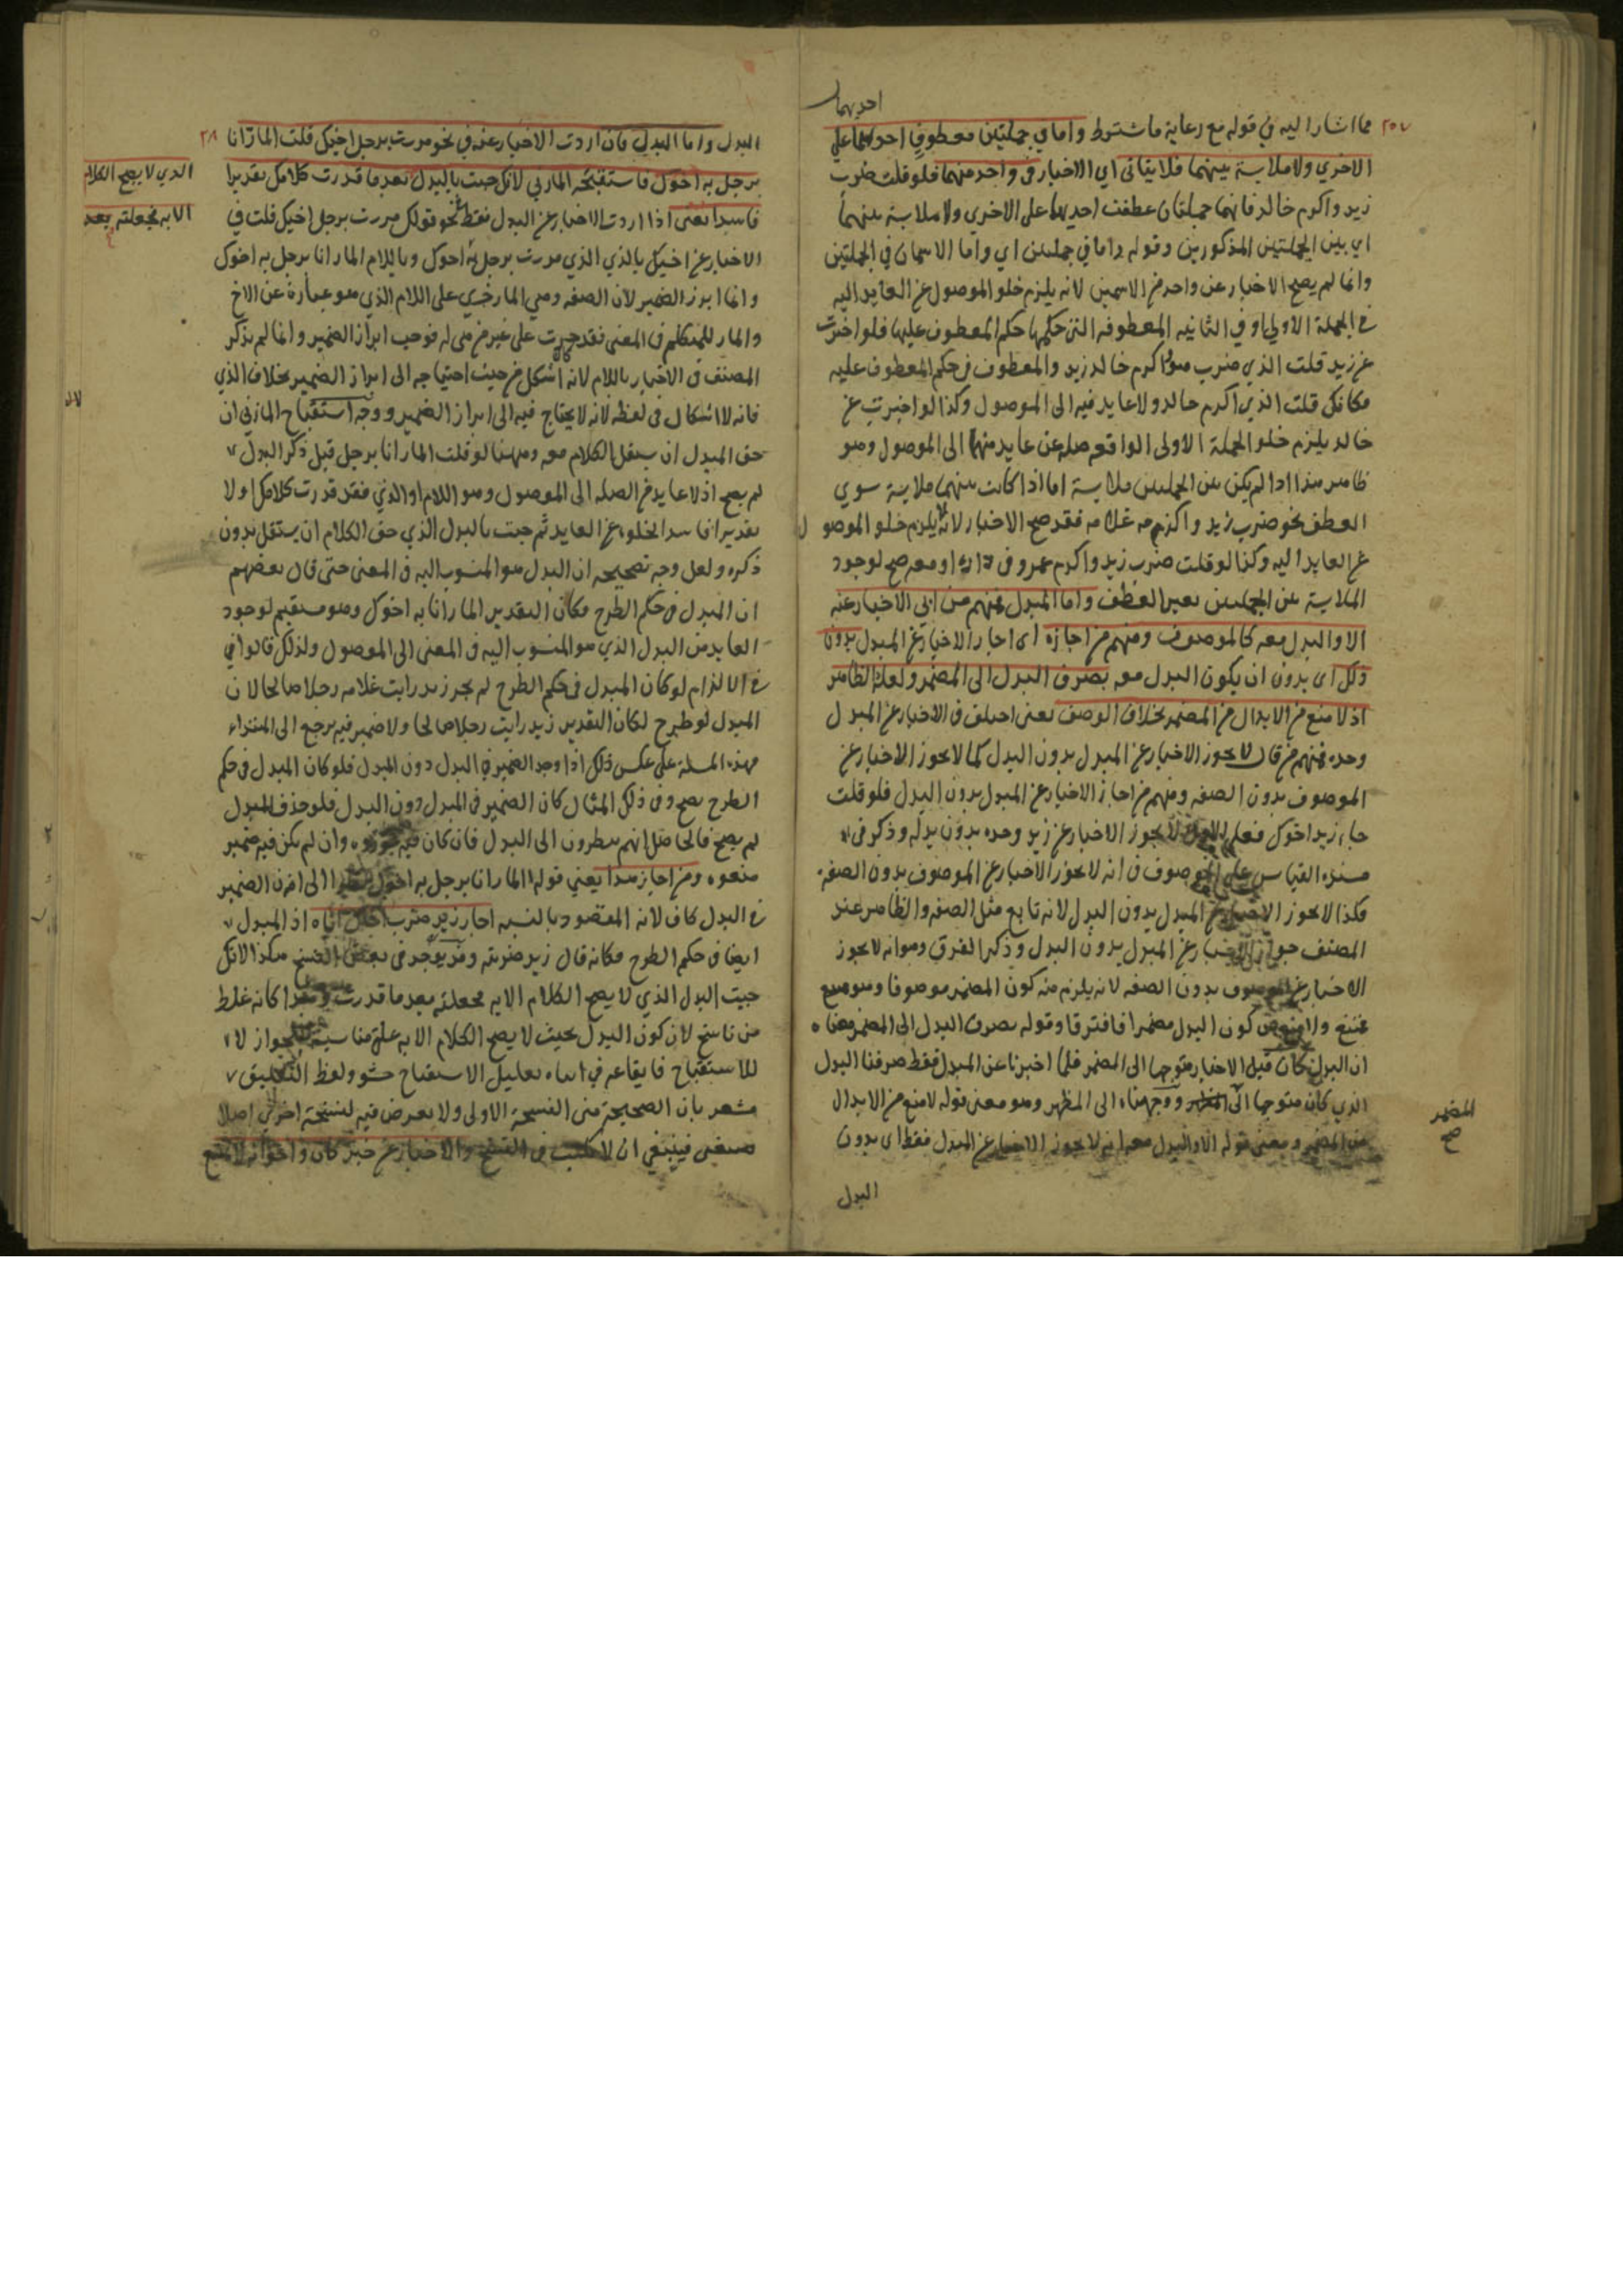 احديهما
٢٥٧ مما اشار اليه في قوله مع رعاية ما شترط واما في جملتين معطوف احدهما علي
الاخري ولا ملابسة بينهما فلا يتاتى اي الاخبار في واحد منهما فلو قلت ضرب
زيد واكرم خالد فانهما جملتان عطفت احديهما على الاخري ولا ملابسة بينهما
اي بين الجملتين المذكورين وقوله واما في جملتين اي واما الاسمان في الجملتين
وانما لم يصح الاخبار عن واحد من الاسمين لانه يلزم خلو الموصول عن العايد اليه
في الجملة الاولى او في الثانيه المعطوفه التي حكمها حكم المعطوف عليها فلو اخبرت
عن زيد قلت الذي ضرب هو واكرم خالد زيد والمعطوف في حكم المعطوف عليه
فكانك قلت الذي اكرم خالد ولا عايد فيه الى الموصول وكذا لو اخبرت عن
خالد يلزم خلو الجملة الاولى الواقعه صله عن عايد منها الى الموصول وهو
ظاهر هذا اذا لم يكن بين الجملتين ملابسة اما اذا كانت بينهما ملابسة سوي
العطف نحو ضرب زيد واكرم غلامه فقد صح الاخبار لانه لا يلزم خلو الموصول
عن العايد اليه وكذا لو قلت ضرب زيد واكرم عمرو في داره او معه صح لوجود
الملابسة بين الجملتين بغير العطف واما المبدل فمنهم من ابي الاخبار عنه
الا والبدل معه كالموصوف ومنهم من اجازه اي اجاز الاخبار عن المبدل بدون
ذلك اى بدون ان يكون البدل معه بصرف البدل الى المضمر ولعله الظاهر
اذ لا منع من الابدال من المضمر بخلاف الوصف يعنى اختلف في الاخبار عن المبدل
وحده فمنهم من قال لا يجوز الاخبار عن المبدل بدون البدل كما لا يجوز الاخبار عن
الموصوف بدون الصفه ومنهم من اجاز الاخبار عن المبدل بدون البدل فلو قلت
جاء زيد اخوك فعلى الاول لا يجوز الاخبار عن زيد وحده بدون بدله وذكر في
هذه القياس على الموصوف في انه لا يجوز الاخبار عن الموصوف بدون الصفه
فكذا لا يجوز الاخبار عن المبدل بدون البدل لانه تابع مثل الصفه والظاهر عند
المصنف جواز الاخبار عن المبدل بدون البدل وذكر الفرق وهو انه لا يجوز
الاخبار عن الموصوف بدون الصفه لانه يلزم منه كون المضمر موصوفا وهو
ممتنع ولا كون البدل مضمرا فافترقا وقوله بصرف البدل الى المضمر معناه
ان البدل كان قبل الاخبار متوجها الى المضمر فلما اخبرنا عن المبدل فقط صرفنا البدل
الذي كان متوجها الى المظهر ووجهناه الى المظهر وهو معنى قوله لا منع من الابدال
المضمر
صح
من المضمر ومعنى قوله الا والبدل معه انه لا يجوز الاخبار عن المبدل فقط اى بدون
البدل
٢٨١ البدل واما البدل فان اردت الاخبار عنه في نحو مررت برجل اخيك قلت المار انا
برجل به اخوك فاستقبحه المازني لانك جئت بالبدل بعد ما قدرت كلامك تقديرا
الذي لا يصح الكلام
الا به فجعلته بعد
فاسدا يعنى اذا اردت الاخبار عن البدل فقط نحو قولك مررت برجل اخيك قلت في
الاخبار عن اخيك بالذي الذي مررت برجل به اخوك وباللام المار انا برجل به اخوك
وانما ابرز الضمير لان الصفه وهي المار جري على اللام الذي هو عبارة عن الاخ
والمار للمتكلم في المعنى فقد جرت على غير من هي له فوجب ابراز الضمير وانما لم يذكر
المصنف في الاخبار باللام لانه اشكل من حيث احتياجه الى ابراز الضمير بخلاف الذي
فانه لا اشكال في لفظه لانه لا يحتاج فيه الى ابراز الضمير ووجه استقباح المازني ان
حق المبدل ان يستقل الكلام معه وههنا لو قلت المار انا برجل قبل ذكر البدل
لم يصح اذ لا عايد من الصله الى الموصول وهو اللام او الذي فقد قدرت كلامك اولا
تقديرا فاسدا لخلوه عن العايد ثم جئت بالبدل الذي حق الكلام ان يستقل بدون
ذكره ولعل وجه تصحيحه ان البدل هو المنسوب اليه في المعنى حتى قال بعضهم
ان المبدل في حكم الطرح فكان التقدير المار انا به اخوك وهو مستقيم لوجود
العايد من البدل الذي هو المنسوب اليه في المعنى الى الموصول ولذلك قالوا في
في الالزام لو كان المبدل في حكم الطرح لم يجز زيد رايت غلامه رجلا صالحا لان
المبدل لو طرح لكان التقدير زيد رايت رجلا صالحا ولا ضمير فيه يرجع الى المبتداء
فهذه المسلة على عكس ذلك اذا وجد الضمير في البدل دون المبدل فلو كان المبدل في حكم
الطرح يصح وفي ذلك المثال كان الضمير في المبدل دون البدل فلو حذف المبدل
لم يصح فالحاصل انهم ينظرون الى البدل فان كان فيه وان لم يكن فيه ضمير
منعوه ومن اجاز هذا يعني قوله المار انا برجل به اخوك الى ان الضمير
في البدل كاف لانه المقصود بالنسبه اجاز زيد ضربت اخاك اياه اذ المبدل
ايضا في حكم الطرح فكانه قال زيد ضربته وقد يوجد في بعض النسخ هكذا لانك
جيت البدل الذي لا يصح الكلام الا به فجعلته بعد ما قدرت وهذا كانه غلط
من ناسخ لان كون البدل بحيث لا يصح الكلام الا به علة مناسبة للجواز لا
للاستقباح فايقاعه في اثناء تعليل الاستقباح حشو ولفظ التعليق
مشعر بان الصحيحة هي النسخة الاولى ولا تعرض فيه لنسخة اخري اصلا
فينبغي ان لا يكتب في النسخ والاخبار عن خبر كان واخواته لا يمتنع